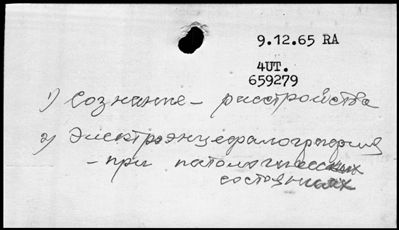 9.12.65 RA
4UT.
659279
1) Сознание – расстройства
2) Электроэнцефалография
– при патологических
состояниях